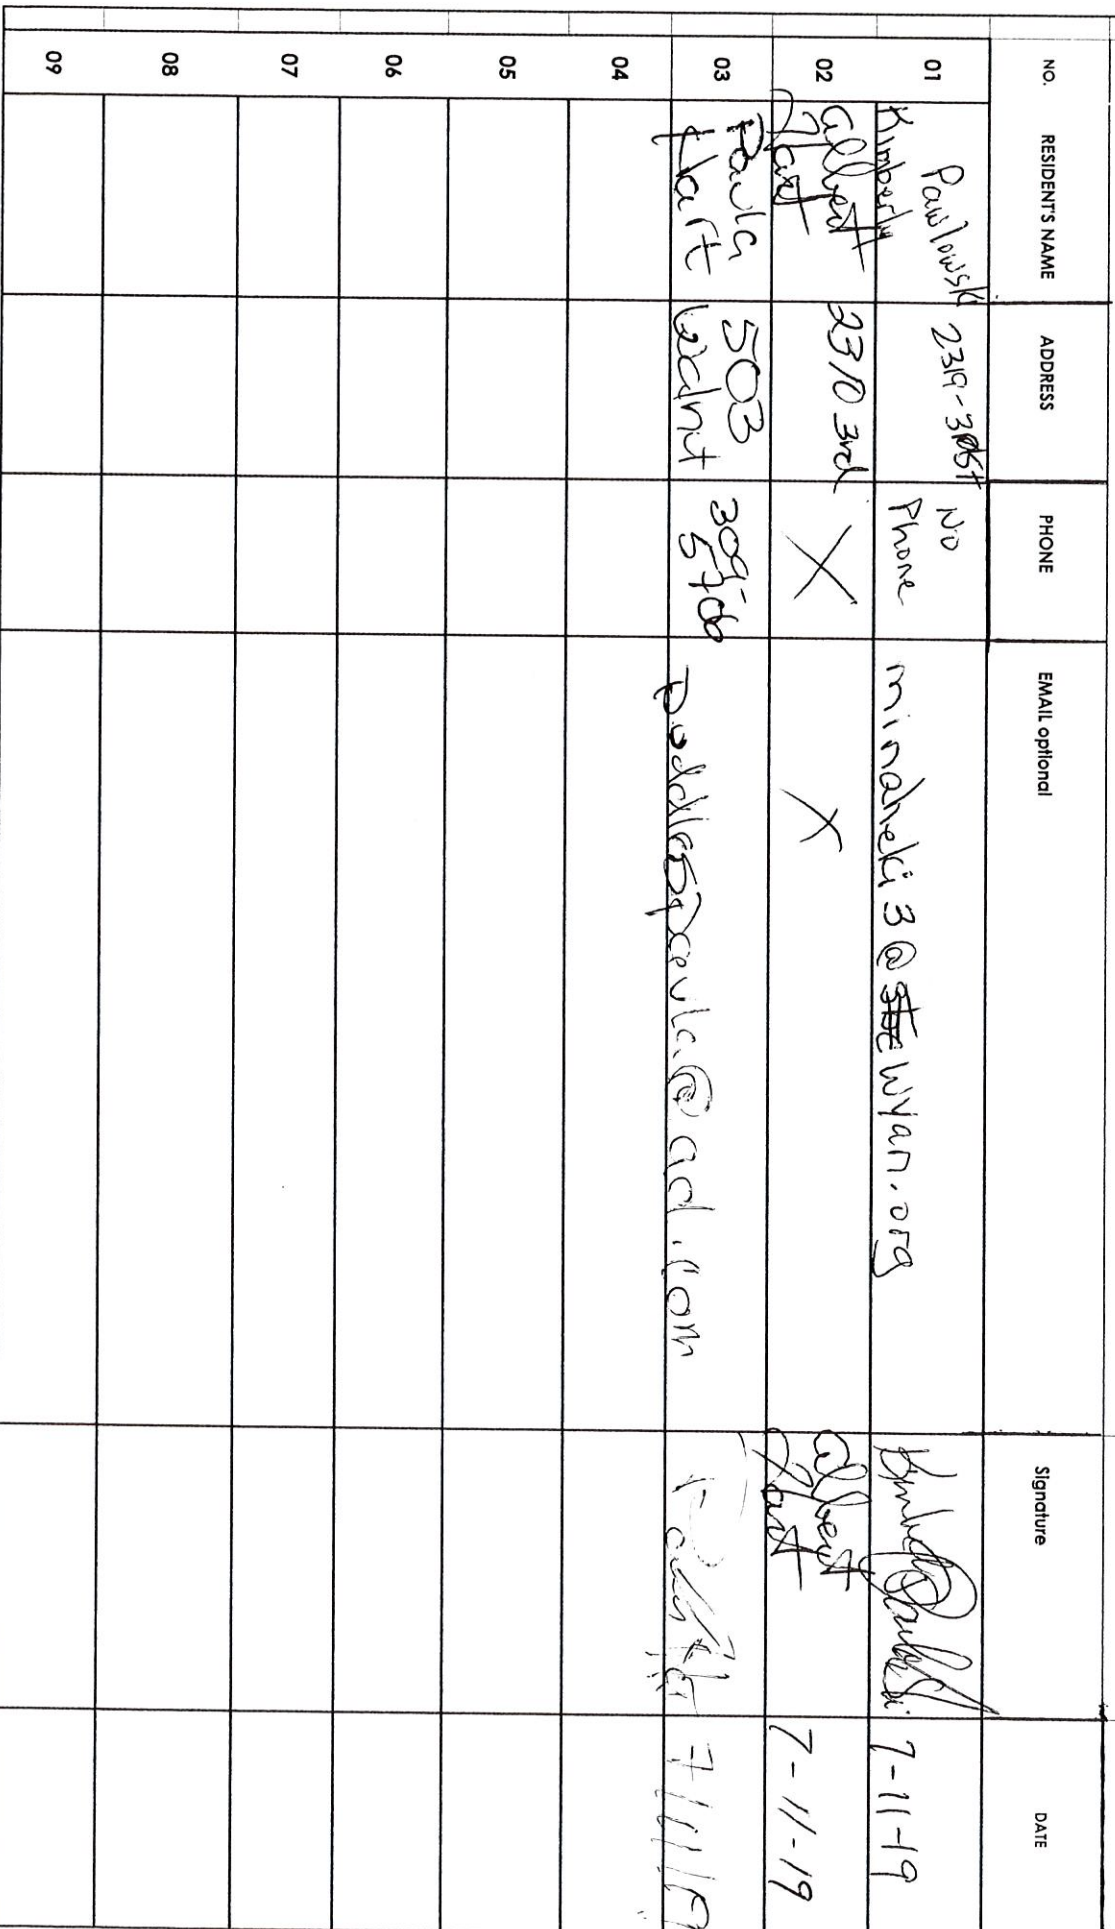 NO. RESIDENT'S NAME ADDRESS PHONE EMAIL optional Signature DATE
01 Kimberly Pawlowski 2319-3rd St No Phone mindheki3@wyan.org 7-11-19
02 Albert Hart 2310 3rd X X Albert Hart 7-11-19
03 Paula Hart 503 Walnut 309- 5700 @aol.com 7/11/19
04
05
06
07
08
09